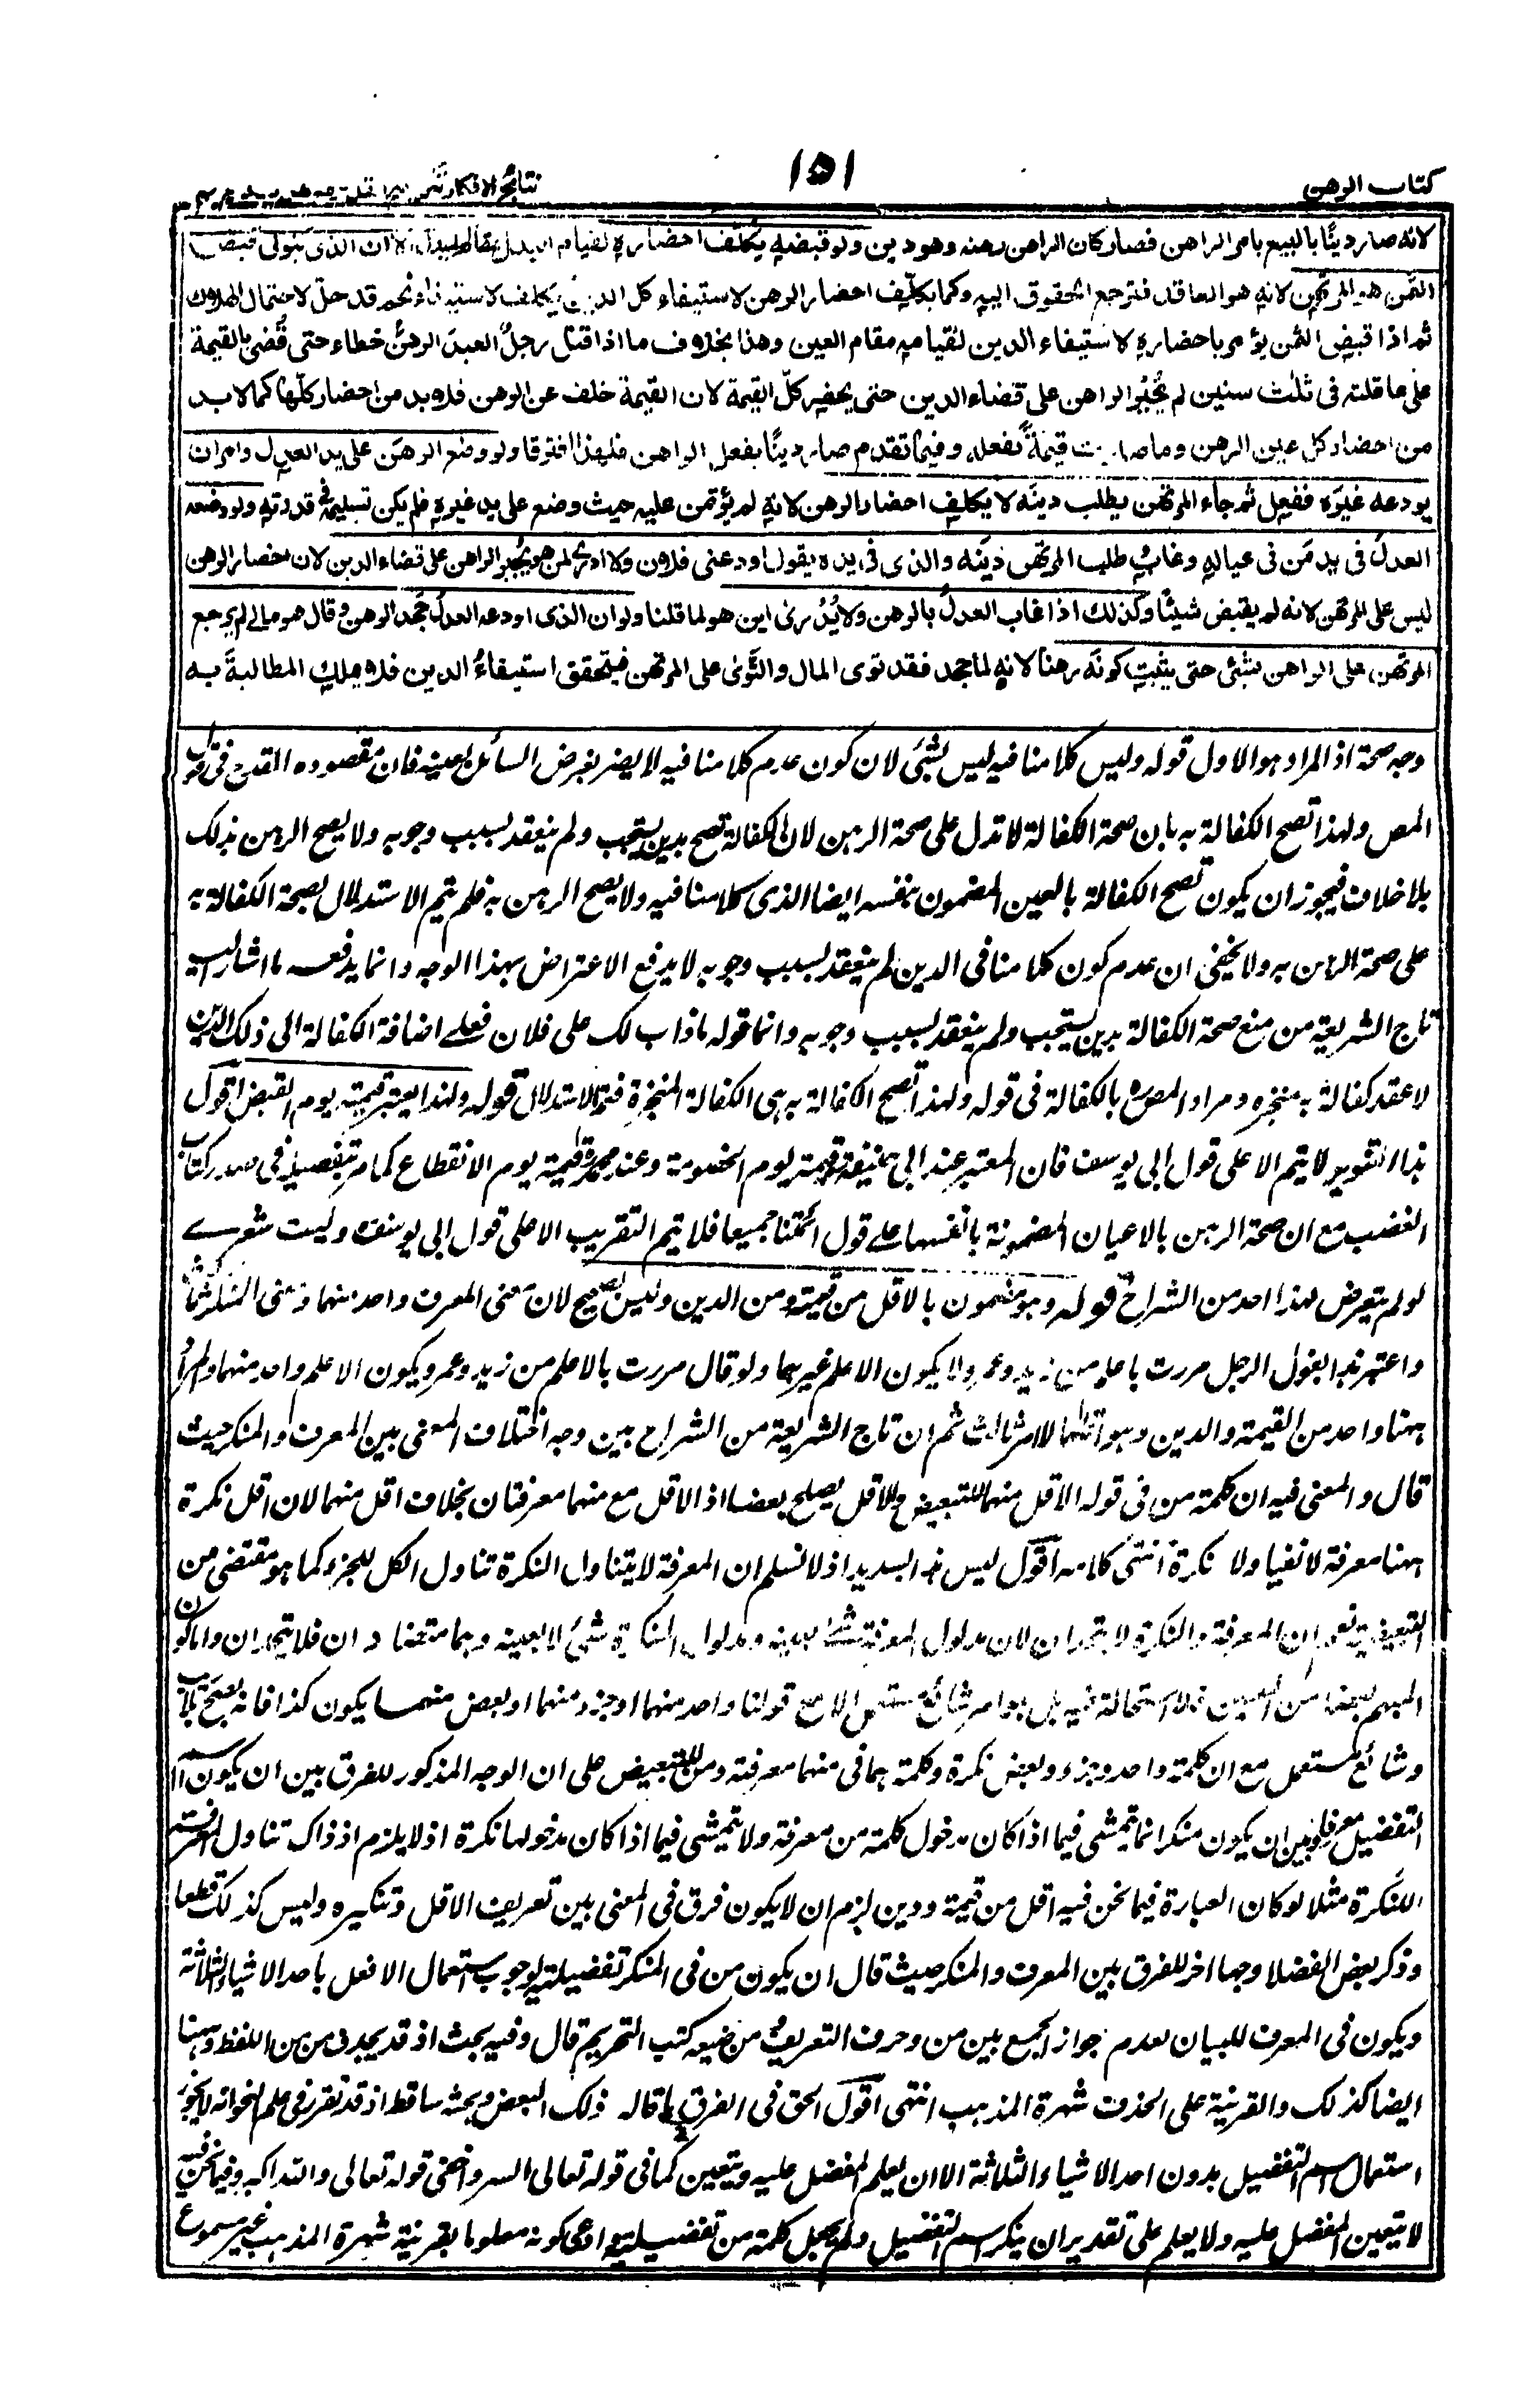 كتاب الرهن
١٥١
نتائج الافكار
لانه صار دينًا بالبيع بامر الراهن فصار كان الراهن رهنه وهو دين ولو قبضه يكلّف احضاره لقيام البدل مقام المبدل الا ان الذى يتولى قبض
الثمن هو المرتهن لانه هو العاقد فترجع الحقوق اليه وكما يكلّف احضار الرهن لاستيفاء كل الدين يكلف لاستيفاء نجم قد حلّ لاحتمال الهلاك
ثم اذا قبض الثمن يؤمر باحضاره لاستيفاء الدين لقيامه مقام العين وهذا بخلاف ما اذا قتل رجلٌ العبدَ الرهنَ خطاء حتى قُضى بالقيمة
على عاقلته فى ثلث سنين لم يُجبَر الراهن على قضاء الدين حتى يحضر كلّ القيمة لان القيمة خلف عن الرهن فلا بد من احضار كلّها كما لا بد
من احضار كل عين الرهن وما صارت قيمةً بفعله وفيما تقدم صار دينًا بفعل الراهن فلهذا افترقا ولو وضع الرهنَ على يد العدل وامر ان
يودعه غيرَه ففعل ثم جاء المرتهن يطلب دينَه لا يكلف احضار الرهن لانه لم يؤتمن عليه حيث وضع على يد غيره فلم يكن تسليمه فى قدرته ولو وضعه
العدلُ فى يد مَن فى عياله وغاب وطلب المرتهن دَينَه والذى فى يده يقول اودعنى فلان ولا ادرى لمن هو يُجبَر الراهن على قضاء الدين لان احضار الرهن
ليس على المرتهن لانه لم يقبض شيئًا وكذلك اذا غاب العدلُ بالرهن ولا يُدرى اين هو لما قلنا ولو ان الذى اودعه العدلُ جحد الرهن وقال هو مالى لم يرجع
المرتهن على الراهن بشئ حتى يثبت كونه رهنا لانه لما جحد فقد توى المال والتَّوى على المرتهن فيتحقق استيفاءُ الدين فلا يملك المطالبةَ به
وجه صحة اذ المراد هو الاول قوله وليس كلامنا فيه ليس بشئ لان كون عدم كلامنا فيه لا يضر بغرض السائل بعينه فان مقصوده القدح فى قول
المص ولهذا تصح الكفالة به بان صحة الكفالة لا تدل على صحة الرهن لان الكفالة تصح بدين يستجب ولم ينعقد سبب وجوبه ولا يصح الرهن بذلك
بلا خلاف فيجوز ان يكون تصح الكفالة بالعين المضمون بنفسه ايضا الذى كلامنا فيه ولا يصح الرهن به فلم يتم الاستدلال بصحة الكفالة به
على صحة الرهن به ولا يخفى ان عدم كون كلامنا فى الدين لم ينعقد سبب وجوبه لا يدفع الاعتراض بهذا الوجه وانما يدفعه ما اشار اليه
تاج الشريعة من منع صحة الكفالة بدين يستجب ولم ينعقد سبب وجوبه وانما قوله ماذاب لك على فلان فعلى اضافة الكفالة الى ذلك الدين
لا عقد كفالة به منجزه ومراد المص بالكفالة فى قوله ولهذا تصح الكفالة به هى الكفالة المنجزة فتم الاستدلال قوله ولهذا يعتبر قيمته يوم القبض اقول
هذا التنوير لا يتم الا على قول ابى يوسف فان المعتبر عند ابى حنيفة قيمته يوم الخصومة وعند محمد قيمته يوم الانقطاع كما مر تفصيله فى صدر كتاب
الغضب مع ان صحة الرهن بالاعيان المضمونة بانفسها على قول ائمتنا جميعا فلا يتم التقريب الا على قول ابى يوسف وليت شعرى
لو لم يتعرض لهذا احد من الشراح قوله وهو مضمون بالاقل من قيمته ومن الدين وليس بصحيح لان معنى المعرف واحد منهما ومعنى المنكر ثالث
واعتبر هذا بقول الرجل مررت باعلم من زيد وعمرو لا يكون الاعلم غيرهما ولو قال مررت بالاعلم من زيد وعمرو يكون الاعلم واحد منهما والمراد
ههنا واحد من القيمة والدين وهو اقلهما لا امر ثالث ثم ان تاج الشريعة من الشراح بين وجه اختلاف المعنى بين المعرف والمنكر حيث
قال والمعنى فيه ان كلمة من فى قوله الاقل منهما للتبعيض والاقل يصلح بعضا اذ الاقل مع منهما معرفتان بخلاف اقل منهما لان اقل نكرة
ههنا معرفة لا نفيا ولا نكرة انتهى كلامه اقول ليس هذا بسديد اذ لا نسلم ان المعرفة لا يتناول النكرة تناول الكل للجزء كما هو مقتضى من
التبعيضية نعم ان المعرفة والنكرة لا يتحدان لان مدلول المعرفة شئ بعينه ومدلول النكرة شئ لا بعينه وهما متضادان فلا يتحدان واما كون
المبهم بعضا من المعين فلا استحالة فيه بل هو امر شائع مستعمل الا مع قولنا واحد منهما او جزء منهما او بعض منهما يكون كذا فانه صحيح بلا ريب
وشائع مستعمل مع ان كلمة واحد وجزء وبعض نكرة وكلمة هما فى منهما معرفة ومن للتبعيض على ان الوجه المذكور للفرق بين ان يكون اسم
التفضيل معرفا وبين ان يكون منكرا انما يتمشى فيما اذا كان مدخول كلمة من معرفة ولا يتمشى فيما اذا كان مدخولها نكرة اذ لا يلزم اذ ذاك تناول المعرفة
للنكرة مثلا لو كان العبارة فيما نحن فيه اقل من قيمة ودين لزم ان لا يكون فرق فى المعنى بين تعريف الاقل وتنكيره وليس كذلك قطعا
وذكر بعض الفضلا وجها اخر للفرق بين المعرف والمنكر حيث قال ان يكون من فى المنكر تفضيلية لوجوب استعمال الافعل باحد الاشياء الثلاثة
ويكون فى المعرف للبيان لعدم جواز الجمع بين من وحرف التعريف من ضيعه كتب التحريم قال وفيه بحث اذ قد يحذف من من اللفظ وههنا
ايضا كذلك والقرنية على الحذف شهرة المذهب انتهى اقول الحق فى الفرق ما قاله ذلك البعض وبحثه ساقط اذ قد تقرر فى علم النحو انه لا يجوز
استعمال اسم التفضيل بدون احد الاشياء الثلاثة الا ان يعلم المفضل عليه ويتعين كما فى قوله تعالى السر واخفى قوله تعالى والله اكبر وفيما نحن فيه
لا يتعين المفضل عليه ولا يعلم على تقدير ان ينكر اسم التفضيل ولم يجعل كلمة من تفضيلية وادعى كونه معلوما بقرنية شهرة المذهب غير مسموع